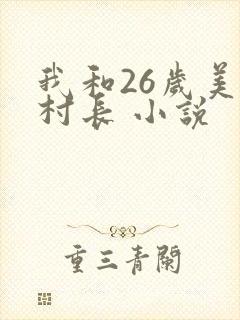 我和26歲美
村長 小說
重三青關